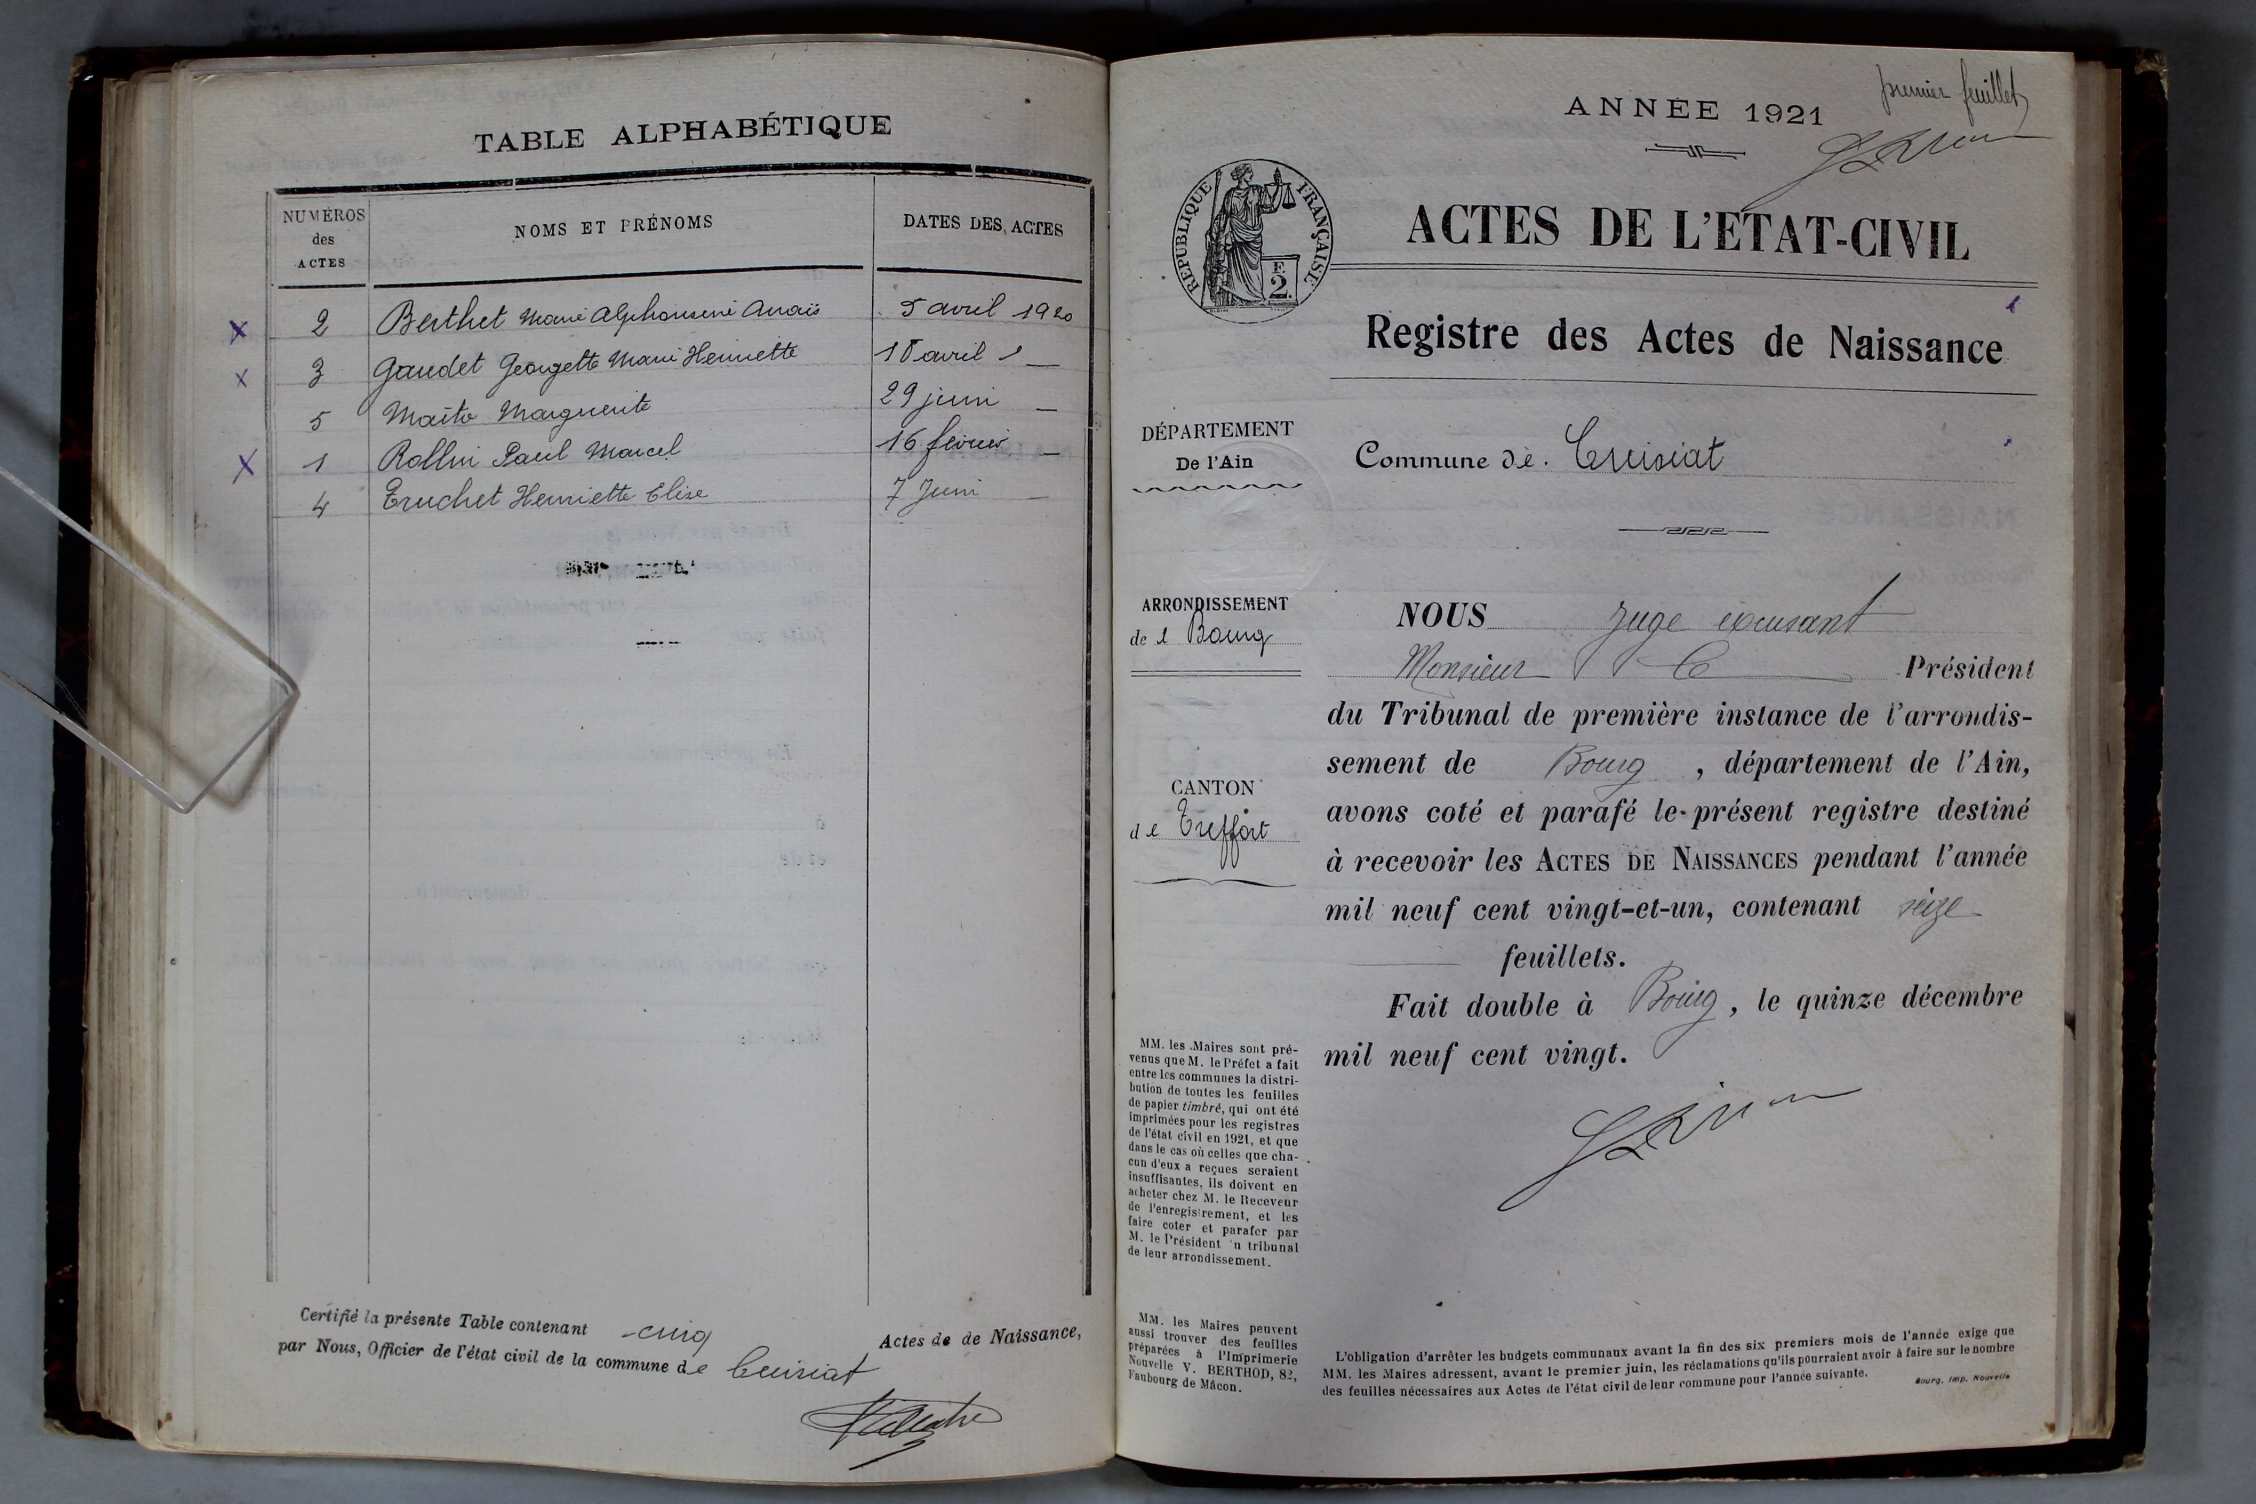 TABLE ALPHABÉTIQUE
NUMÉROS des ACTES NOMS ET PRÉNOMS DATES DES ACTES
x 2 Berthet Marie Alphonsine Anaïs 5 avril 1920
x 3 Gaudet Georgette Marie Henriette avril
5 Marguerite 29 juin —
x 1 Rollin Paul Marcel 16 février —
4 Truchet Henriette Elise 7 Juin —
Certifié la présente Table contenant cinq Actes de de Naissance,
par Nous, Officier de l'état civil de la commune de Cuisiat
premier feuillet
ANNÉE 1921
RÉPUBLIQUE FRANÇAISE
F. 2.
ACTES DE L'ETAT-CIVIL
Registre des Actes de Naissance
DÉPARTEMENT
De l'Ain
Commune de. Cuisiat
ARRONDISSEMENT
de Bourg
CANTON
de Treffort
NOUS Juge excusant
Monsieur le Président
du Tribunal de première instance de l'arrondis-
sement de Bourg, département de l'Ain,
avons coté et parafé le présent registre destiné
à recevoir les ACTES DE NAISSANCES pendant l'année
mil neuf cent vingt-et-un, contenant seize
feuillets.
Fait double à Bourg, le quinze décembre
mil neuf cent vingt.
MM. les Maires sont pré-
venus que M. le Préfet a fait
entre les communes la distri-
bution de toutes les feuilles
de papier timbré, qui ont été
imprimées pour les registres
de l'état civil en 1921, et que
dans le cas où celles que cha-
cun d'eux a reçues seraient
insuffisantes, ils doivent en
acheter chez M. le Receveur
de l'enregistrement, et les
faire coter et parafer par
M. le Président 'u tribunal
de leur arrondissement.
MM. les Maires peuvent
aussi trouver des feuilles
préparées à l'Imprimerie
Nouvelle V. BERTHOD, 82,
Faubourg de Mâcon.
L'obligation d'arrêter les budgets communaux avant la fin des six premiers mois de l'année exige que
MM. les Maires adressent, avant le premier juin, les réclamations qu'ils pourraient avoir à faire sur le nombre
des feuilles nécessaires aux Actes de l'état civil de leur commune pour l'année suivante.
Bourg, Imp. Nouvelle